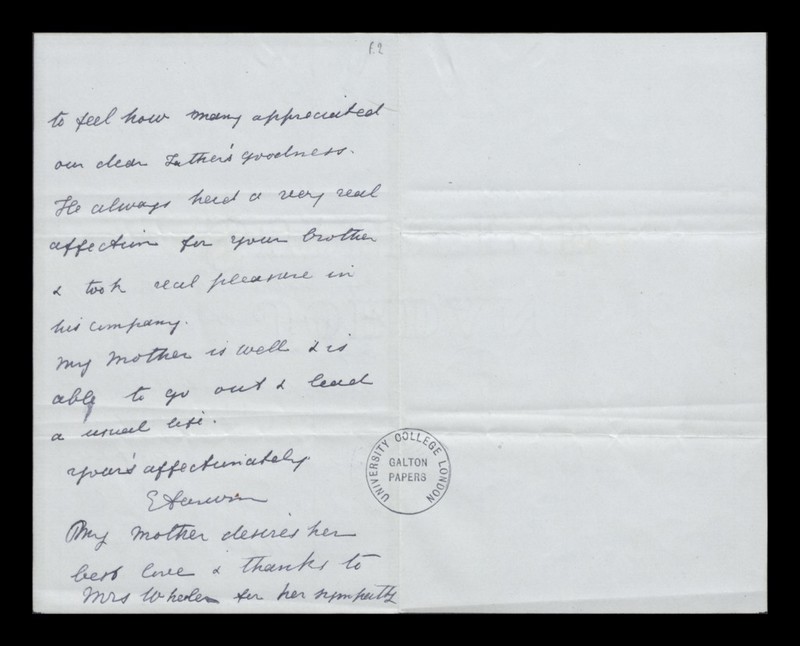 f.2
to feel how many appreciated
our dear Father's goodness.
He always had a very real
affection for your brother
& took real pleasure in
his company.
My Mother is well & is
able to go out & lead
a usual life.
yours affectionately
E Darwin
My mother desires her
best love & thanks to
Mrs Wheler for her sympathy
UNIVERSITY COLLEGE LONDON
GALTON
PAPERS